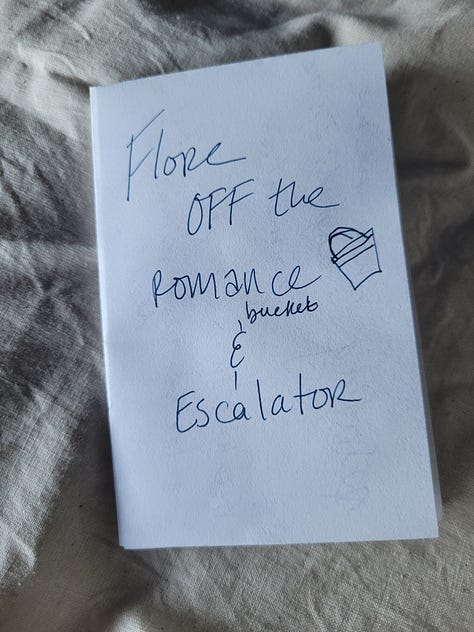 Flore
OFF the
Romance
bucket
&
Escalator